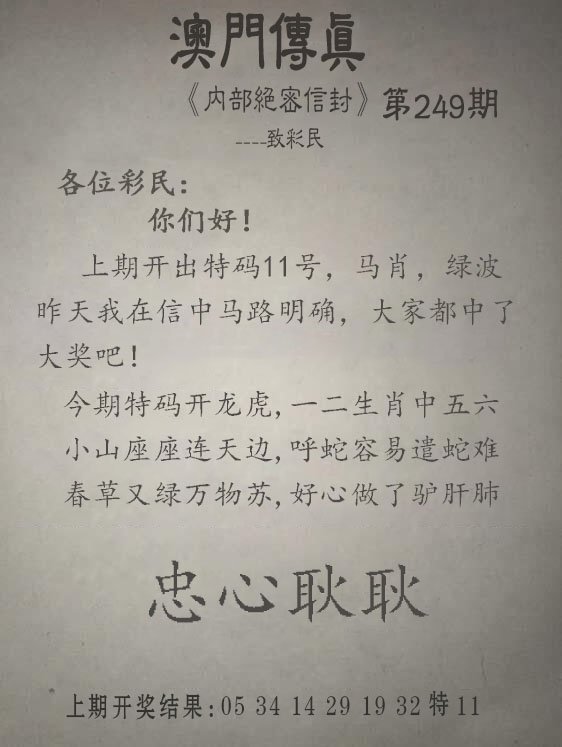 澳門傳眞
《内部絕密信封》第249期
----致彩民
各位彩民：
你们好！
上期开出特码11号，马肖，绿波
昨天我在信中马路明确，大家都中了
大奖吧！
今期特码开龙虎,一二生肖中五六
小山座座连天边,呼蛇容易遣蛇难
春草又绿万物苏,好心做了驴肝肺
忠心耿耿
上期开奖结果:05 34 14 29 19 32 特 11